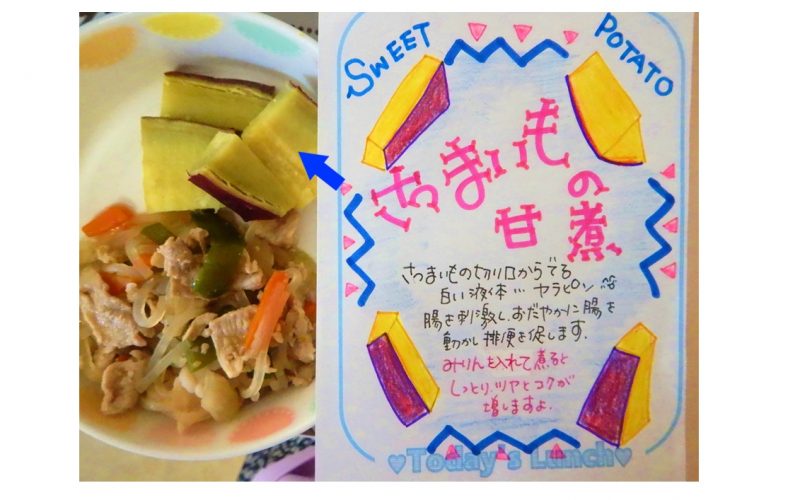 SWEET POTATO
さつまいもの
甘煮
さつまいもの切り口からでる
白い液体…ヤラピン
腸を刺激し、おだやかに腸を
動かし排便を促します.
みりんを入れて煮ると
しっとり、ツヤとコクが
増しますよ.
♥Today's Lunch♥